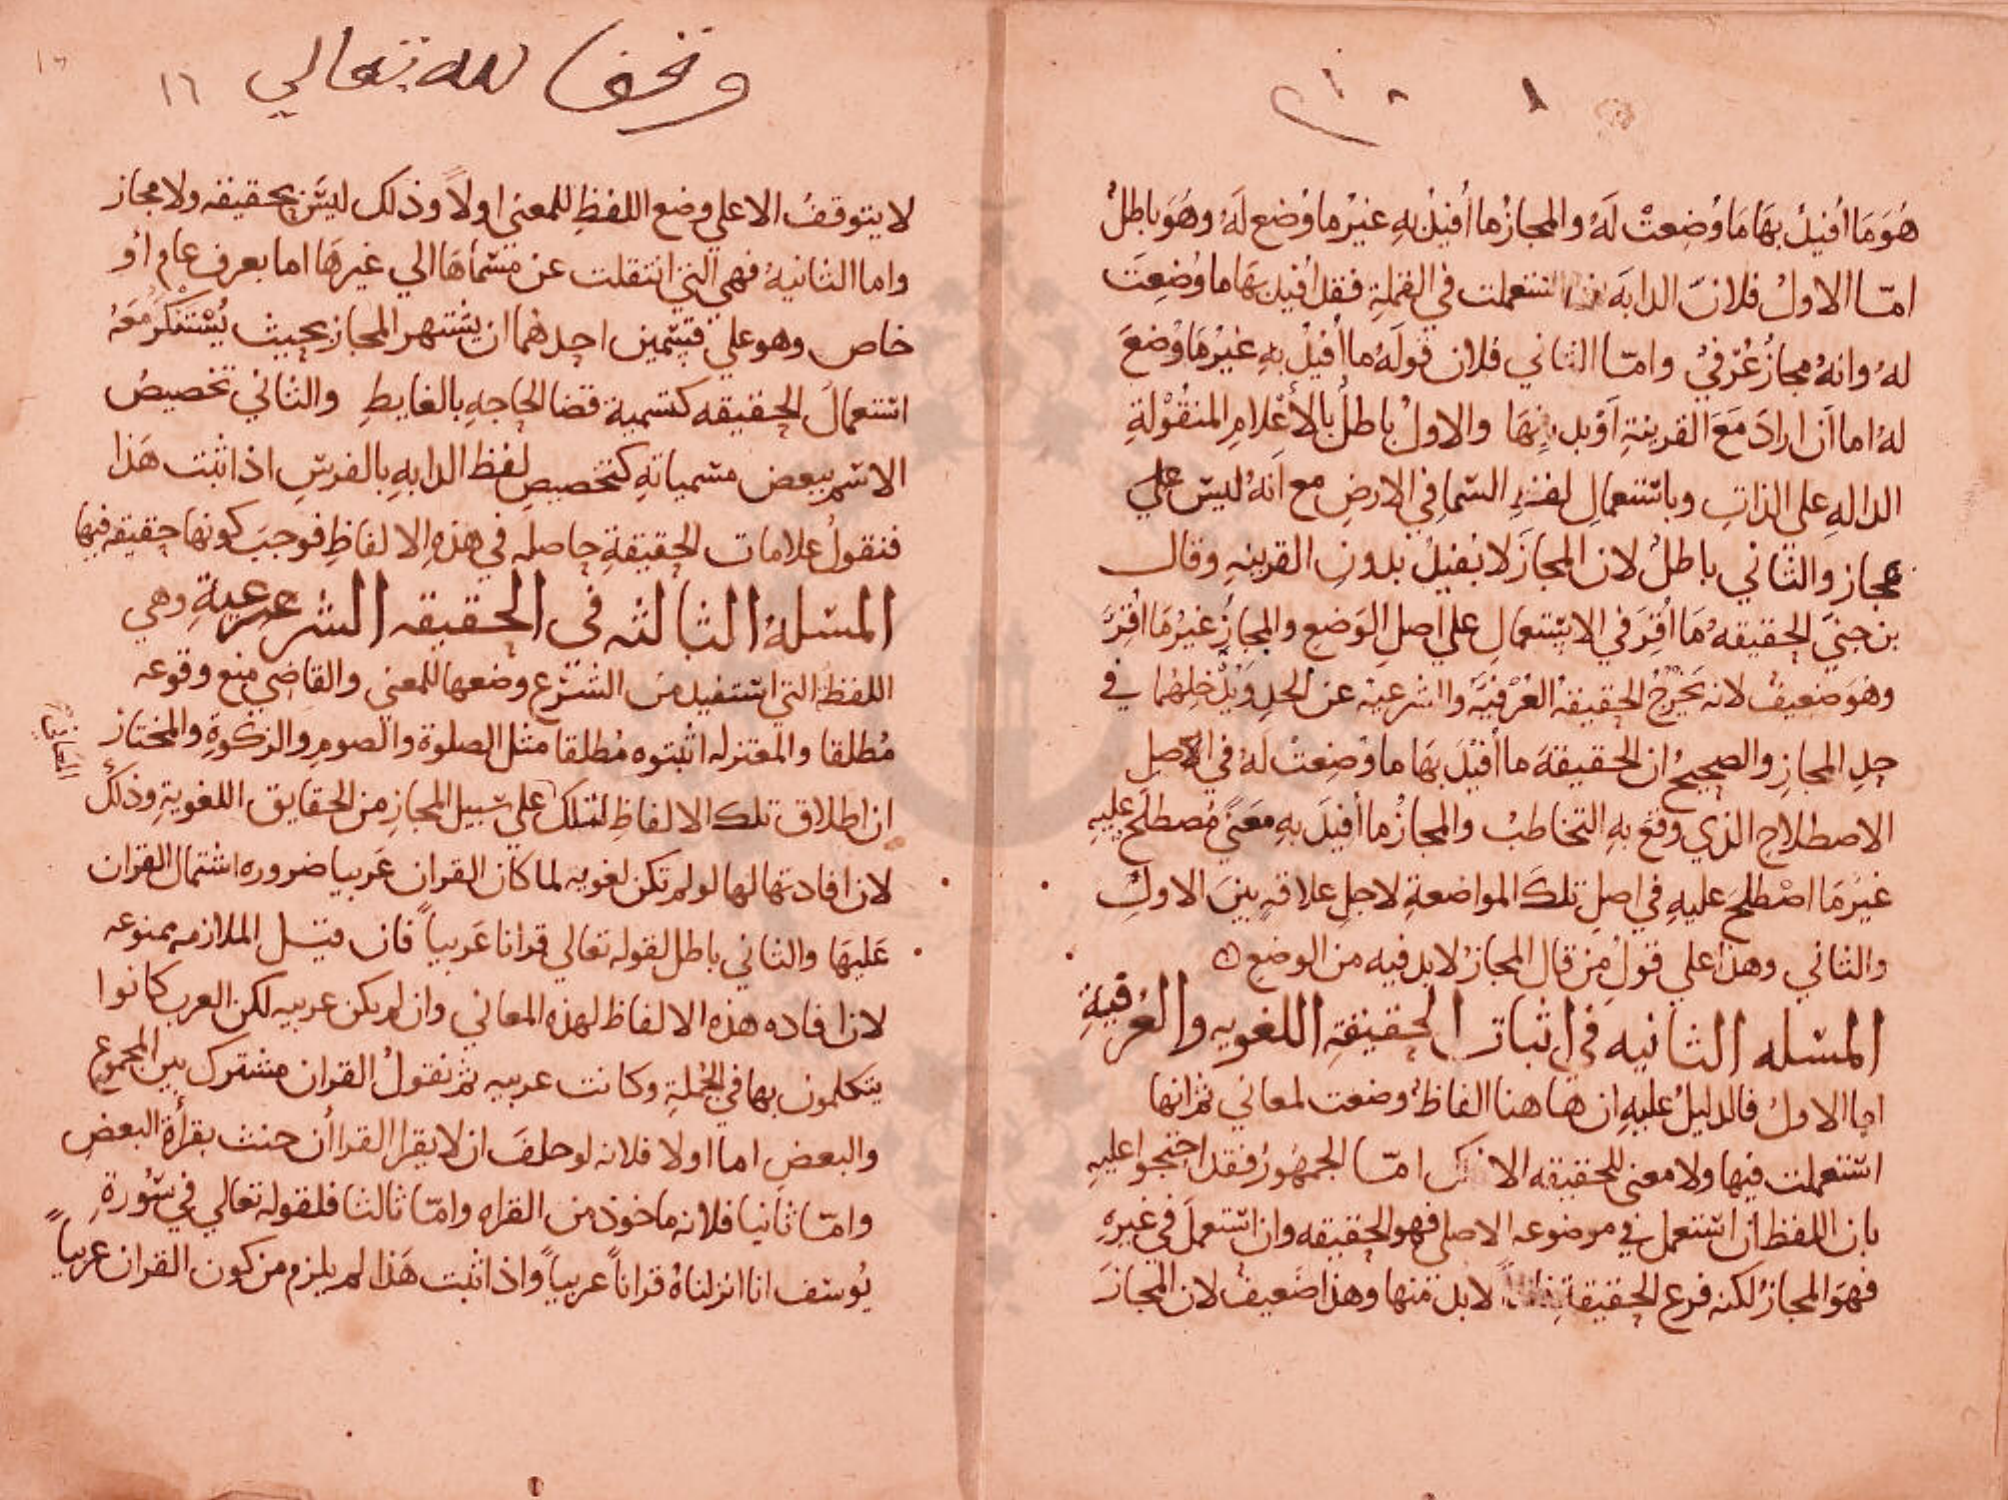 هُوَ مَا اُفيدُ بهَا مَا وُضِعتْ لَهُ والمجازُ ما أُفيدُ بهِ غيرُ ما وُضع لَهُ وهُوَ باطلُ
امّا الاولُ فلانّ الدابَه استعملت في النملةِ فقد اُفيد بهَا ما وُضِعتَ
لهُ وانهُ مجازُ عُرْفيُ وامّا الثاني فلان قولَهُ ما اُفيدُ بهِ غيْرُ مَا وُضعَ
لهُ اما اَن ارادَ مَعَ القرينةِ اَوْ بدونِهَا والاولُ باطلُ بالأَعْلامِ المنقُوْلةِ
الدالهِ على الذاتِ وباستعمالِ لفظِ السّماِ في الارضِ مع انهُ ليس علي
مجاز والثاني باطلُ لان المجازَ لا يفيدُ بدونِ القرينهِ وقال
بن جنيّ الحقيقهُ مَا اُقِرَ في الاستعمالِ علي اصلِ الوَضعِ والمجازُ غيرُ مَا اُقِرَّ
وهُوَ ضعيفُ لانه يَخرُجُ الحقيقهُ العُرْفيَّه والشرعيه عن الحدِ ويُدْخلهُما في
حدِ المجازِ والصحيحُ ان الحقيقةَ ما اُفيْدَ بهَا ما وُضِعتْ لَهُ في الاصلِ
الاصطلاحِ الذي وقعَ بهِ التخاطبُ والمجازُ ما اُفيدَ بهِ معنيً مُصطلَح عليهِ
غيرَ مَا اصْطلحَ عليهِ في اصلِ تلكَ المواضعةِ لاجلِ علاقهٍ بينَ الاولِ
والثاني وهذا علي قولِ من قال المجازُ لابد فيه من الوضع
المسله الثانيه في اثبات الحقيقةِ اللغويه والعُرفيةِ
اما الاولُ فالدليلُ عليهِ ان هَا هنا الفاظُ وضعت لمعاني ثم انها
استعملت فيها ولا معني للحقيقه الا ذلك امّا الجمهُورُ فقد احتجوا عليهِ
بان اللفظ ان استعمل في موضوعه الاصلي فهو الحقيقه وان استعملَ في غيرهِ
فهوَ المجازُ لكنه فرع الحقيقةِ لابد منها وهذا ضَعيفُ لان المجازَ
وقف لله تعالي
١٦
لا يتوقفُ الا علي وضع اللفظِ للمعني اولاً وذلك ليسَ بحقيقه ولا مجاز
واما الثانيهُ فهي التي انتقلت عن مسماهَا الي غيرهَا اما بعرفٍ عامٍ اوْ
خاص وهو علي قسمين احدهُما ان يشتهر المجاز بحيث يُسْتنكَرُ معَهُ
استعمالُ الحقيقه كتسمية قضا الحاجهِ بالغايطِ والثاني تخصيصُ
الاسم ببعض مسمياتهِ كتخصيصِ لفظ الدابهِ بالفرسِ اذا ثبت هَذا
فنقولُ علامات الحقيقةِ حاصله في هذهِ الالفاظِ فوجبَ كونها حقيقه فيها
المسلهُ الثالثه في الحقيقه الشرعيةِ وهي
اللفظهُ التي استفيد من الشرع وضعها للمعني والقاضي منع وقوعه
مُطلقا والمعتزله اثبتوه مُطلقا مثل الصلوة والصومِ والزكوةِ والمختار
ان اطلاق تلك الالفاظِ لتلك علي سبيل المجازِ من الحقايق اللغويةِ وذلك
المعاني
لان افادتها لها لو لم تكن لغويه لما كان القران عَربيا ضروره اشتمال القران
عَليهَا والثاني باطل لقوله تعالي قرانا عَربياً فان قيل الملازمه ممنوعه
لان افاده هذه الالفاظ لهذه المعاني وان لم يكن عربيه لكن العرب كانوا
يتكلمون بها في الجُملةِ وكانت عربيه ثم نقولُ القران مشترك بين المجموع
والبعضِ اما اولا فلانه لو حلفَ ان لا يقرا القراٰن حنث بقراة البعضِ
وامّا ثانيا فلانه ماخوذ من القراه وامّا ثالثا فلقوله تعالي في سُورةِ
يُوسف انا انزلناهُ قراناً عربياً واذا ثبت هَذا لم يلزم من كون القران عربياً